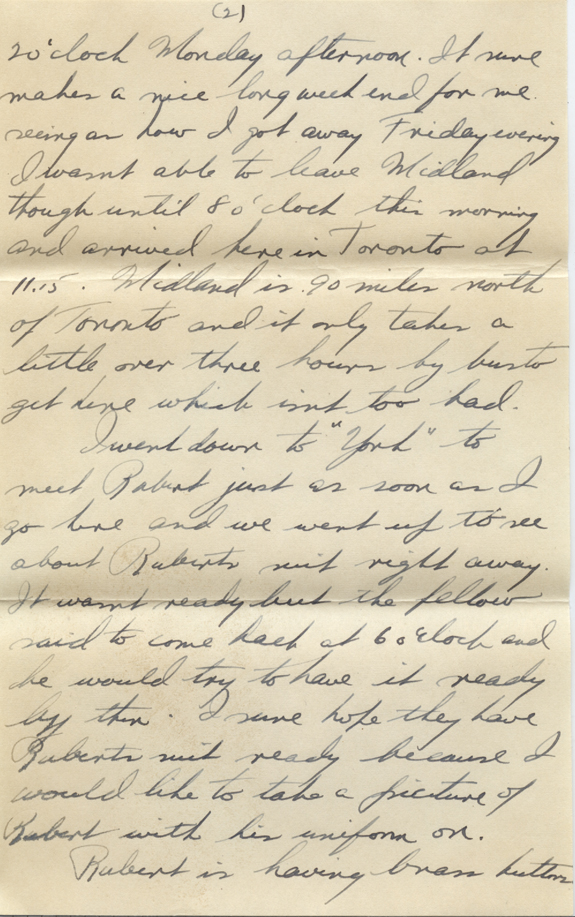 (2)
2 o'clock Monday afternoon. It sure
makes a nice long week end for me
seeing as how I got away Friday evening
I wasnt able to leave Midland
though until 8 o'clock this morning
and arrived here in Toronto at
11.15. Midland is 90 miles north
of Toronto and it only takes a
little over three hours by bus to
get here which isnt too bad.
I went down to "York" to
meet Robert just as soon as I
go here and we went up to see
about Roberts suit right away.
It wasnt ready but the fellow
said to come back at 6 o'clock and
he would try to have it ready
by then. I sure hope they have
Roberts suit ready because I
would like to take a picture of
Robert with his uniform on.
Robert is having brass buttons